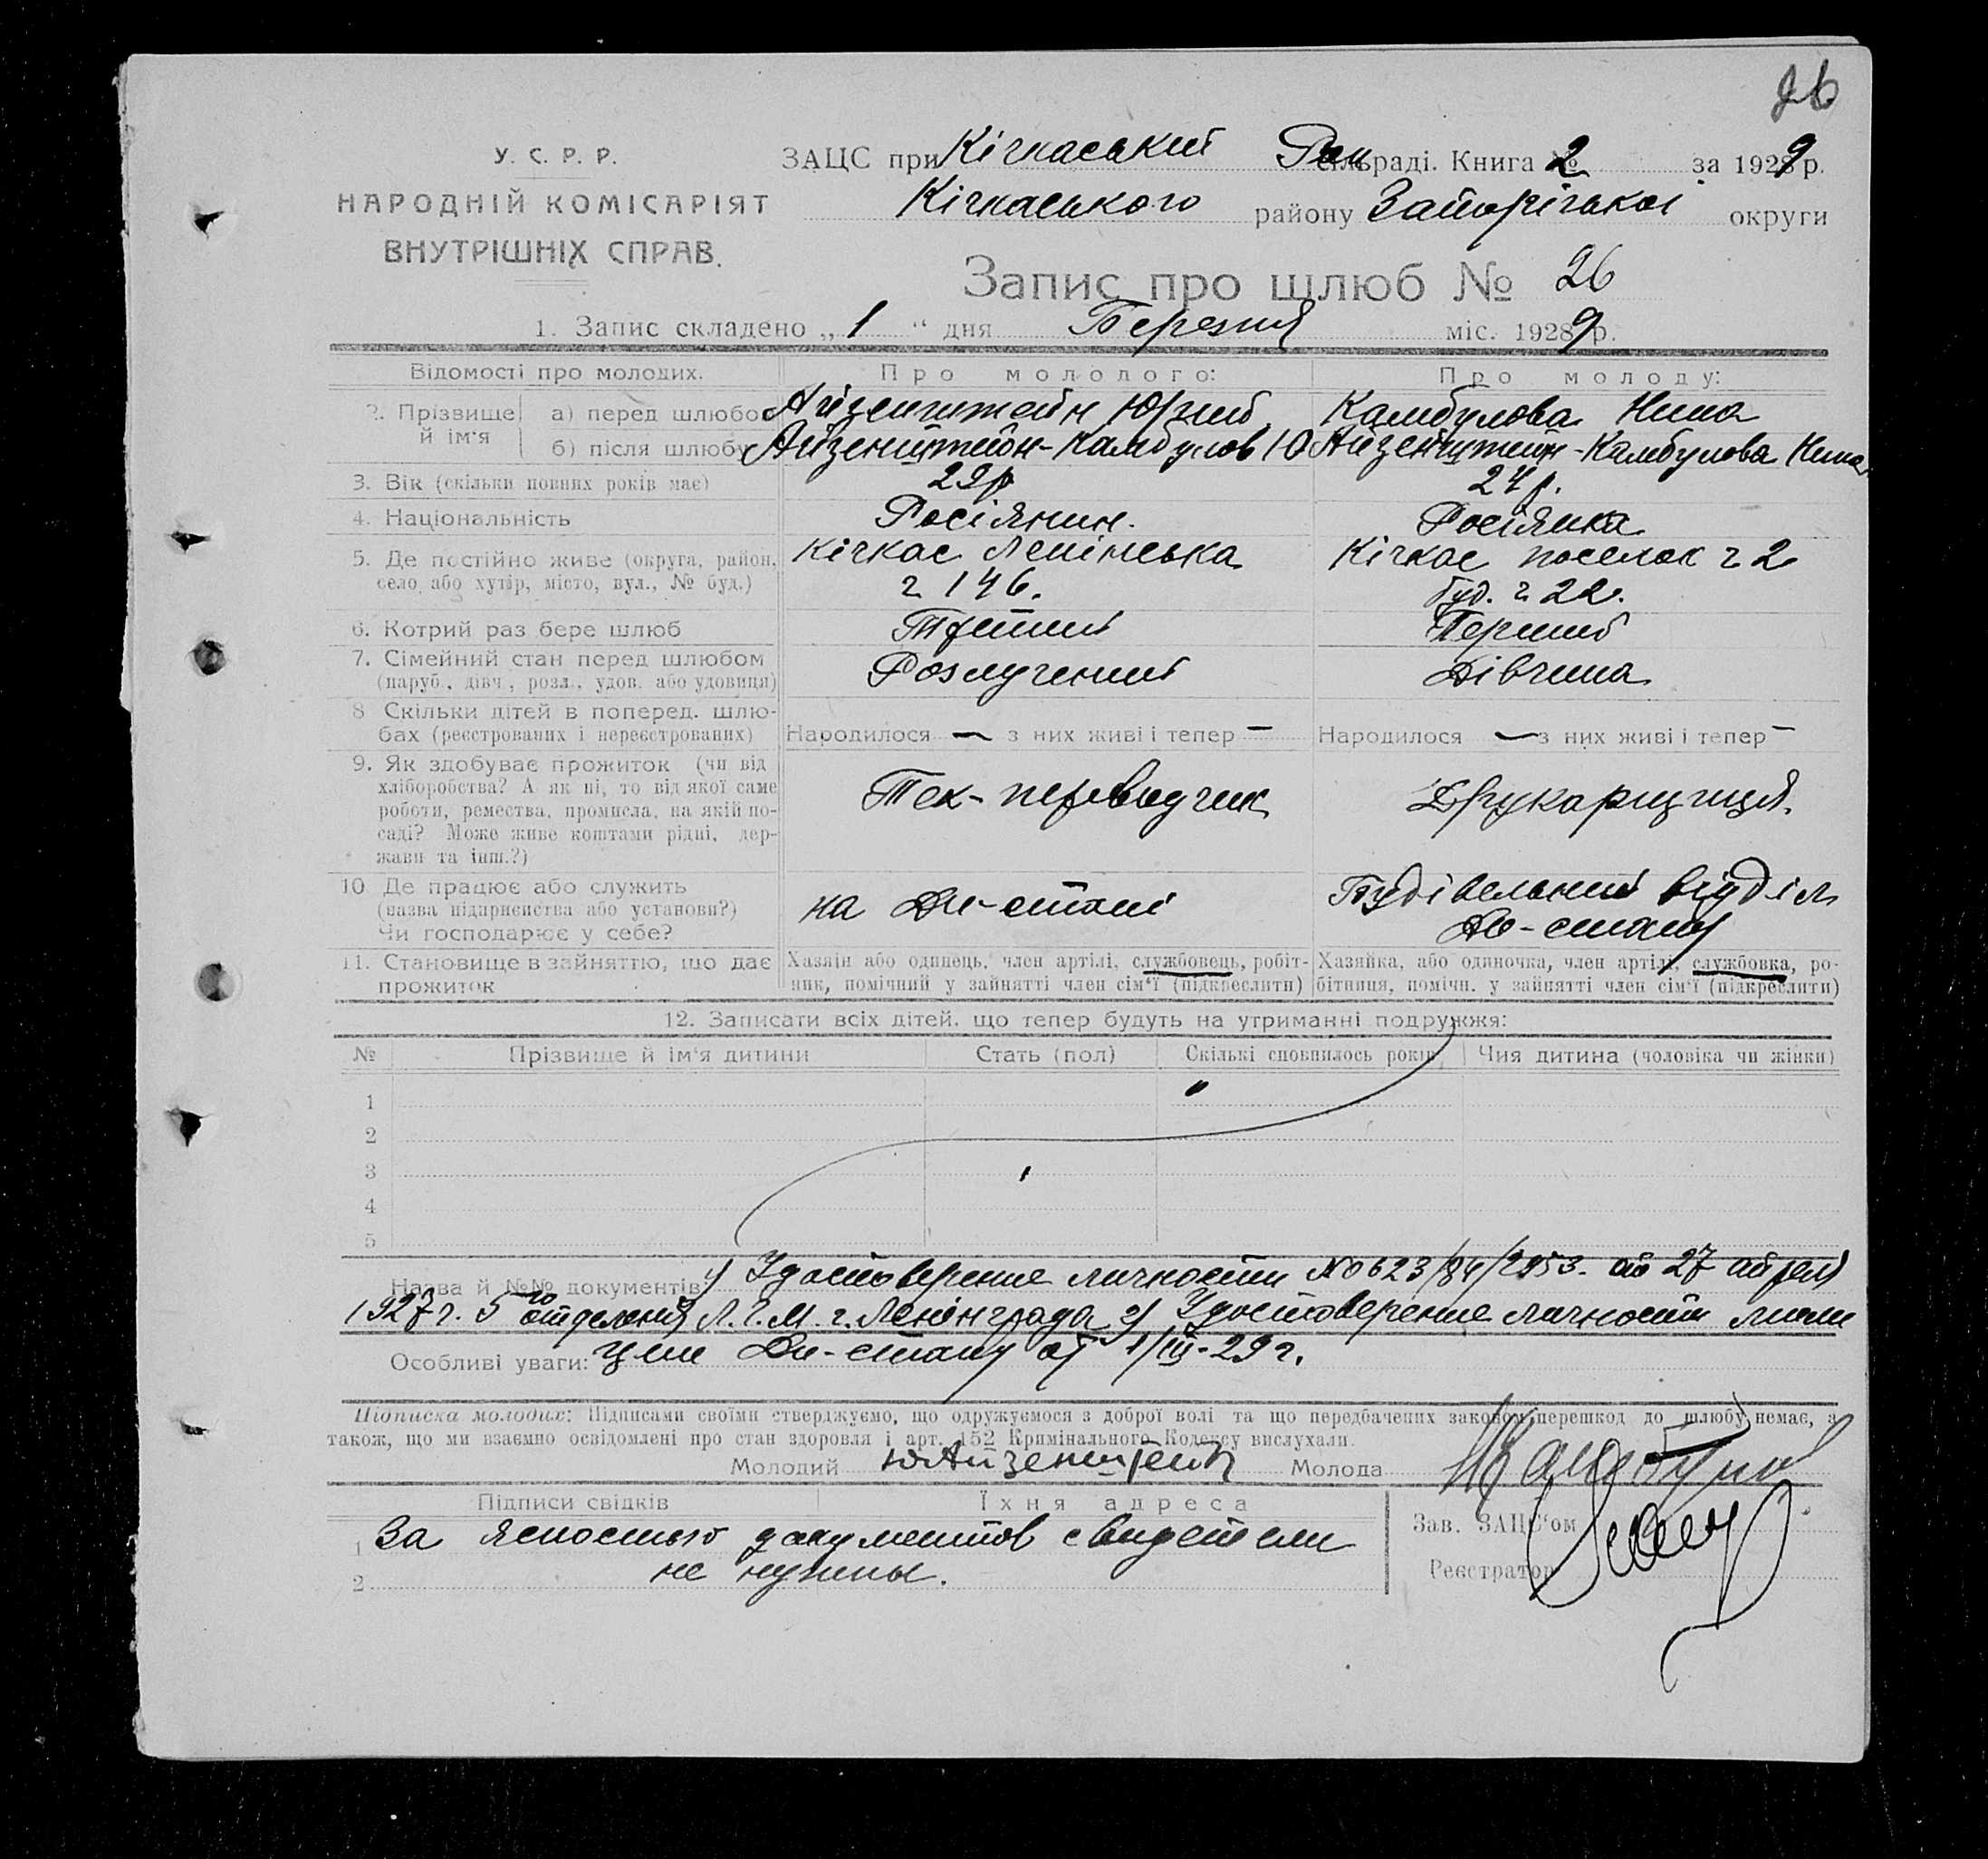 26
У. С. Р. Р.
НАРОДНІЙ КОМІСАРІЯТ
ВНУТРІШНІХ СПРАВ.
ЗАЦС при Кічкаський Рай сільраді. Книга № 2 за 1929 р.
Кічкаського району Запорізької округи
Запис про шлюб № 26
1. Запис складено „ 1 “ дня Березня міс. 1929 р.
Відомості про молодих.
Про молодого:
Про молоду:
2. Прізвище й ім'я
а) перед шлюбом
Айзенштейн Юрий
Камбулова Нина
б) після шлюбу
Айзенштейн-Камбулов Ю
Айзенштейн-Камбулова Нина
3. Вік (скільки повних років має)
29 р
24 р.
4. Національність
Росіянин.
Росіянка
5. Де постійно живе (округа, район,
село або хутір, місто, вул., № буд.)
Кічкас Ленінська
ч 146.
Кічкас поселок ч 2
буд. ч 22.
6. Котрий раз бере шлюб
Третий
Перший
7. Сімейний стан перед шлюбом
(паруб., дівч., розл., удов. або удовиця)
Розлучений
Дівчина
8 Скільки дітей в поперед. шлю-
бах (реєстрованих і нереєстрованих)
Народилося — з них живі і тепер —
Народилося — з них живі і тепер —
9. Як здобуває прожиток (чи від
хліборобства? А як ні, то від якої саме
роботи, ремества, промисла, на якій по-
саді? Може живе коштами рідні, дер-
жави та інш.?)
Тех-переводчик
Друкарщиця.
10 Де працює або служить
(назва підприємства або установи?)
Чи господарює у себе?
на Дн-стані
Будівельний відділ
Дн-стану
11. Становище в зайняттю, що дає
прожиток
Хазяїн або одинець, член артілі, службовець, робіт-
ник, помічний у зайнятті член сім'ї (підкреслити)
Хазяйка, або одиночка, член артілі, службовка, ро-
бітниця, помічн. у зайнятті член сім'ї (підкреслити)
12. Записати всіх дітей, що тепер будуть на утриманні подружжя:
№ Прізвище й ім'я дитини Стать (пол) Скількі сповнилось років Чия дитина (чоловіка чи жінки)
1
2
3
4
5
Назва й №№ документів 1) Удостоверение личности № 623/84/2953. от 27 апреля
1927 г. 5го отделения Л.Г.М. г. Ленінграда 2) Удостоверение личности
Особливі уваги: Дн-стану от 1/III-29 г.
Підписка молодих: Підписами своїми стверджуємо, що одружуємося з доброї волі та що передбачених законом перешкод до шлюбу немає, а
також, що ми взаємно освідомлені про стан здоровля і арт. 152 Кримінального Кодексу вислухали.
Молодий ЮАйзенштейн Молода НКамбулов
Підписи свідків Їхня адреса
1 За ясностью документов свидетели
2 не нужны.
Зав. ЗАЦС'ом
Реєстратор